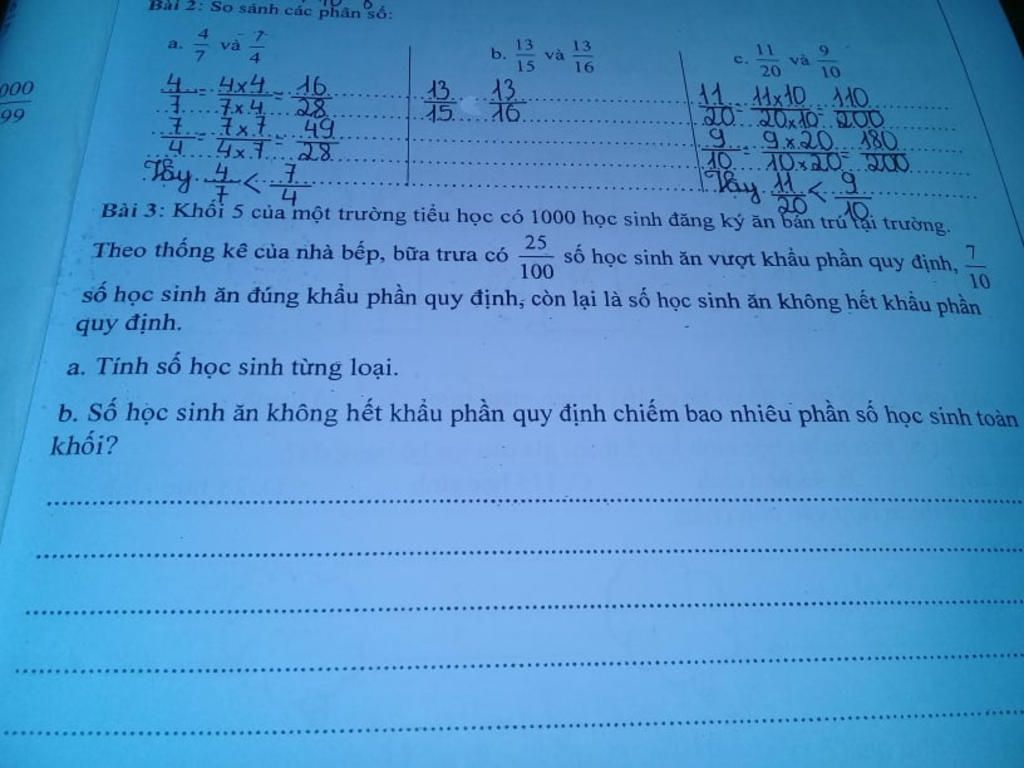 Bài 2: So sánh các phân số:
a. 4/7 và 7/4
b. 13/15 và 13/16
c. 11/20 và 9/10
4/7 = 4x4/7x4 = 16/28
7/4 = 7x7/4x7 = 49/28
Vậy 4/7 < 7/4
13/15 13/16
11/20 = 11x10/20x10 = 110/200
9/10 = 9x20/10x20 = 180/200
Vậy 11/20 < 9/10
Bài 3: Khối 5 của một trường tiểu học có 1000 học sinh đăng ký ăn bán trú tại trường.
Theo thống kê của nhà bếp, bữa trưa có 25/100 số học sinh ăn vượt khẩu phần quy định, 7/10
số học sinh ăn đúng khẩu phần quy định, còn lại là số học sinh ăn không hết khẩu phần
quy định.
a. Tính số học sinh từng loại.
b. Số học sinh ăn không hết khẩu phần quy định chiếm bao nhiêu phần số học sinh toàn
khối?